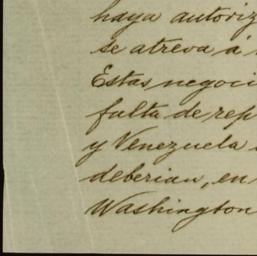 haya autoriz
se atreva á
Estas negoci
falta de rep
y Venezuela
deberian, en
Washington